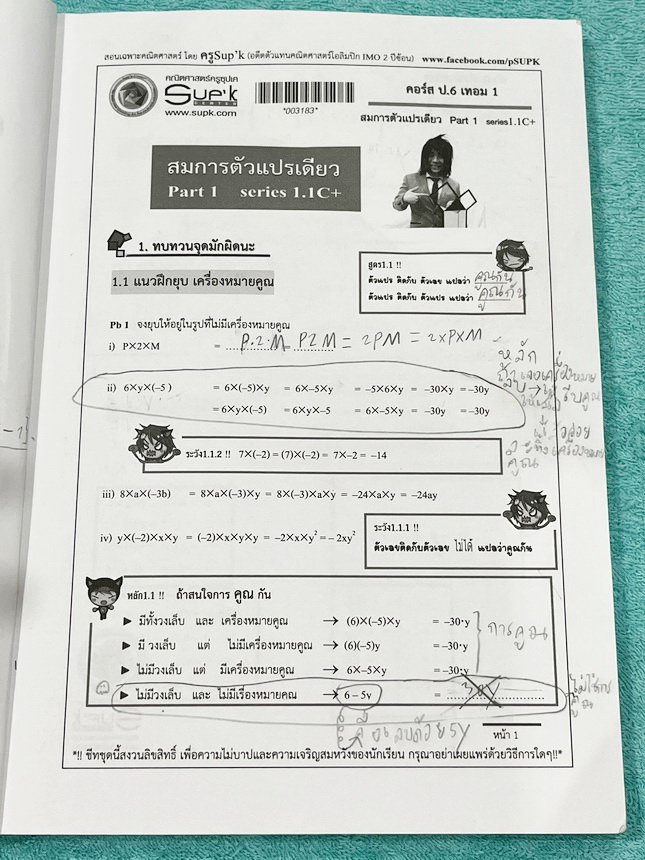 สอนเฉพาะคณิตศาสตร์ โดย ครูSup'k (อดีตตัวแทนคณิตศาสตร์โอลิมปิก IMO 2 ปีซ้อน) www.facebook.com/pSUPK
คณิตศาสตร์ครูซุปเค
Sup'k
CENTER
www.supk.com
*003183*
คอร์ส ป.6 เทอม 1
สมการตัวแปรเดียว Part 1 series1.1C+
สมการตัวแปรเดียว
Part 1 series 1.1C+
1. ทบทวนจุดมักผิดนะ
1.1 แนวฝึกยุบ เครื่องหมายคูณ
สูตร1.1 !!
ตัวแปร ติดกับ ตัวเลข แปลว่า คูณกัน
ตัวแปร ติดกับ ตัวแปร แปลว่า คูณกัน
Pb 1 จงยุบให้อยู่ในรูปที่ไม่มีเครื่องหมายคูณ
i) P×2×M = P·2·M = P2M = 2PM = 2×P×M
หลัก
ii) 6×y×(−5) = 6×(−5)×y = 6×−5×y = −5×6×y = −30×y = −30y
= 6×y×(−5) = 6×y×−5 = 6×−5×y = −30y = −30y
ระวัง1.1.2 !! 7×(−2) = (7)×(−2) = 7×−2 = −14
iii) 8×a×(−3b) = 8×a×(−3)×y = 8×(−3)×a×y = −24×a×y = −24ay
ระวัง1.1.1 !!
ตัวเลขติดกับตัวเลข ไม่ได้ แปลว่าคูณกัน
iv) y×(−2)×x×y = (−2)×x×y×y = −2×x×y² = −2xy²
หลัก1.1 !! ถ้าสนใจการ คูณ กัน
▶ มีทั้งวงเล็บ และ เครื่องหมายคูณ → (6)×(−5)×y = −30·y
▶ มี วงเล็บ แต่ ไม่มีเครื่องหมายคูณ → (6)(−5)y = −30·y
การคูณ
▶ ไม่มีวงเล็บ แต่ มีเครื่องหมายคูณ → 6×−5×y = −30·y
▶ ไม่มีวงเล็บ และ ไม่มีเรื่องหมายคูณ → 6 − 5y =
ลบด้วย 5y
หน้า 1
*!! ชีทชุดนี้สงวนลิขสิทธิ์ เพื่อความไม่บาปและความเจริญสมหวังของนักเรียน กรุณาอย่าเผยแพร่ด้วยวิธีการใดๆ!!*